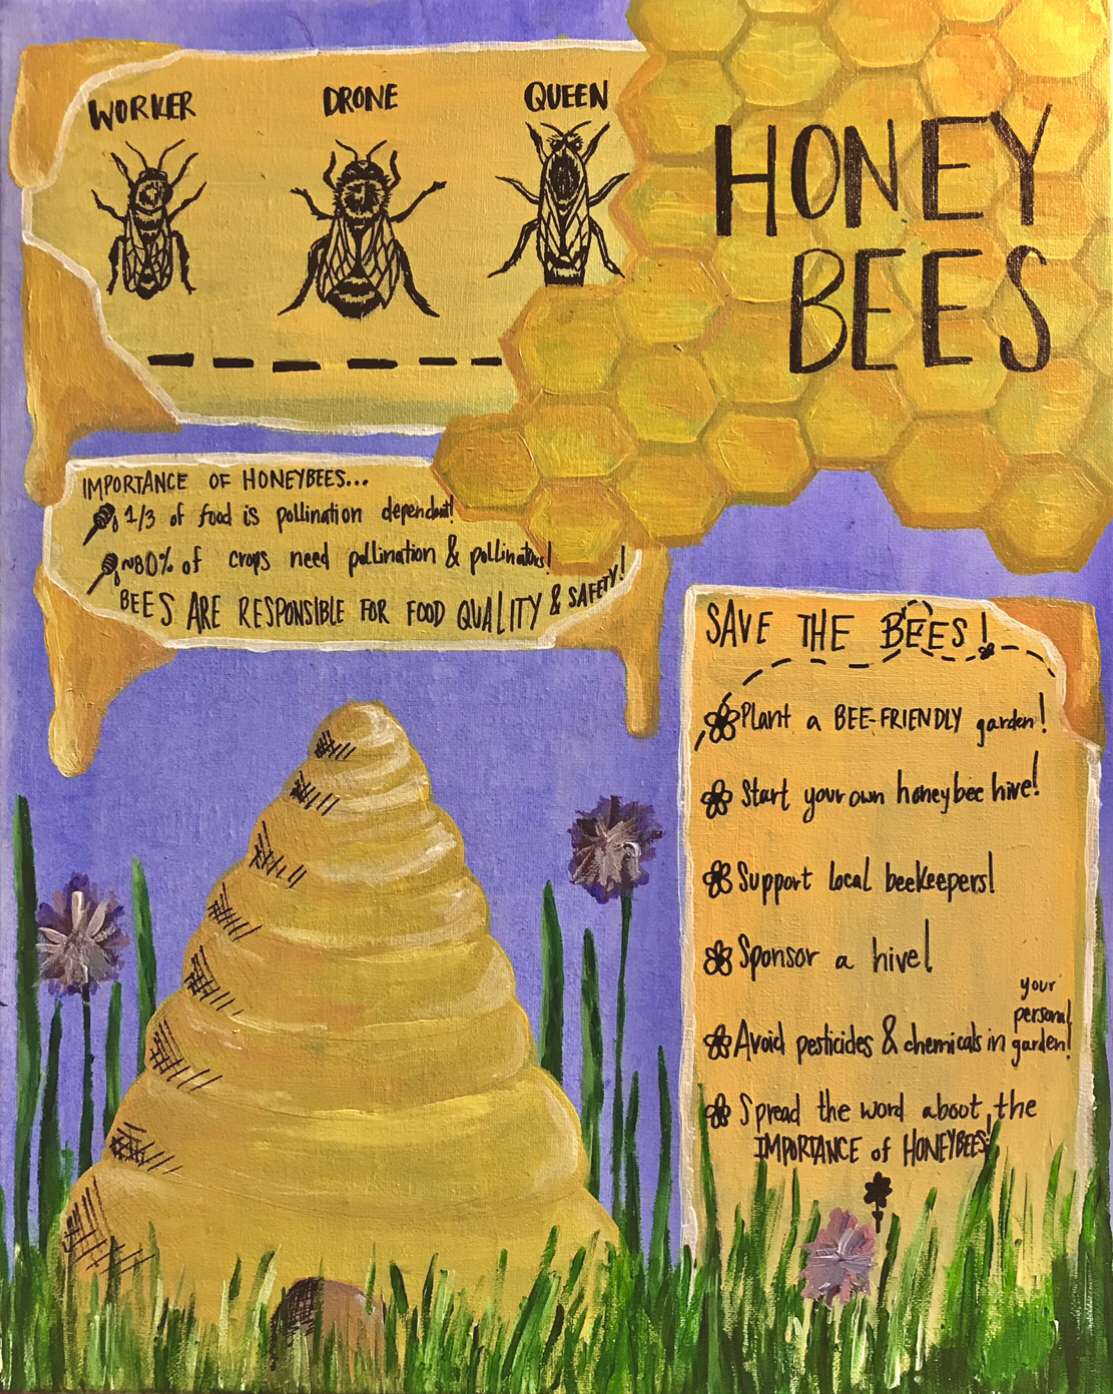 WORKER DRONE QUEEN
HONEY
BEES
IMPORTANCE OF HONEYBEES...
1/3 of food is pollination dependant!
~80% of crops need pollination & pollinators!
BEES ARE RESPONSIBLE FOR FOOD QUALITY & SAFETY!
SAVE THE BEES!
Plant a BEE-FRIENDLY garden!
Start your own honeybee hive!
Support local beekeepers!
Sponsor a hive!
your
personal
Avoid pesticides & chemicals in garden!
Spread the word aboot the
IMPORTANCE of HONEYBEES!